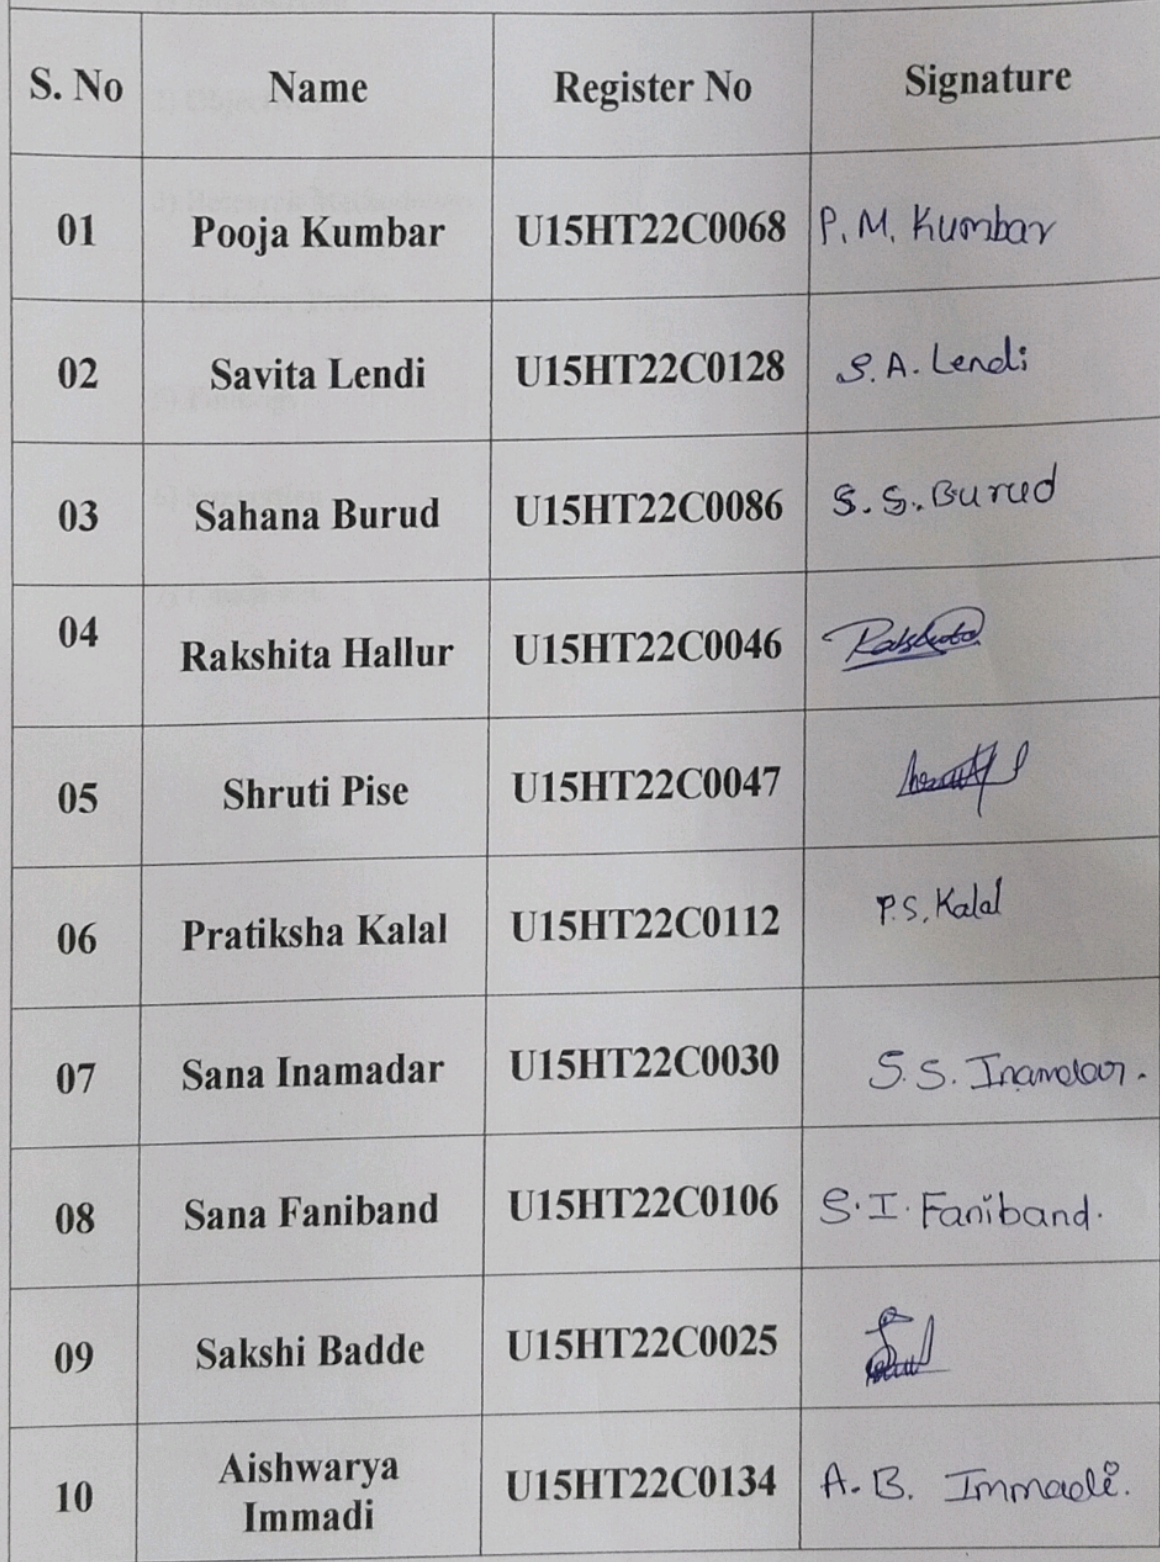 S. No Name Register No Signature
01 Pooja Kumbar U15HT22C0068 P. M. Kumbar
02 Savita Lendi U15HT22C0128 S. A. Lendi
03 Sahana Burud U15HT22C0086 S. S. Burud
04 Rakshita Hallur U15HT22C0046 Rakshita
05 Shruti Pise U15HT22C0047
06 Pratiksha Kalal U15HT22C0112 P. S. Kalal
07 Sana Inamadar U15HT22C0030 S. S. Inamdar.
08 Sana Faniband U15HT22C0106 S. I. Faniband.
09 Sakshi Badde U15HT22C0025
10 Aishwarya
Immadi U15HT22C0134 A. B. Immadi.